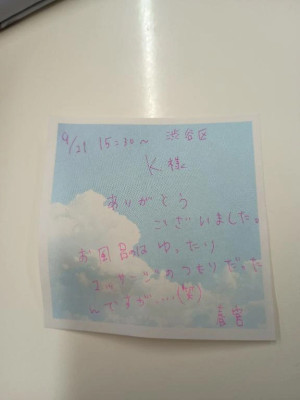 9/21 15:30〜 渋谷区
K様
ありがとう
ございました。
お風呂はゆったり
のつもりだった
んですが....(笑)